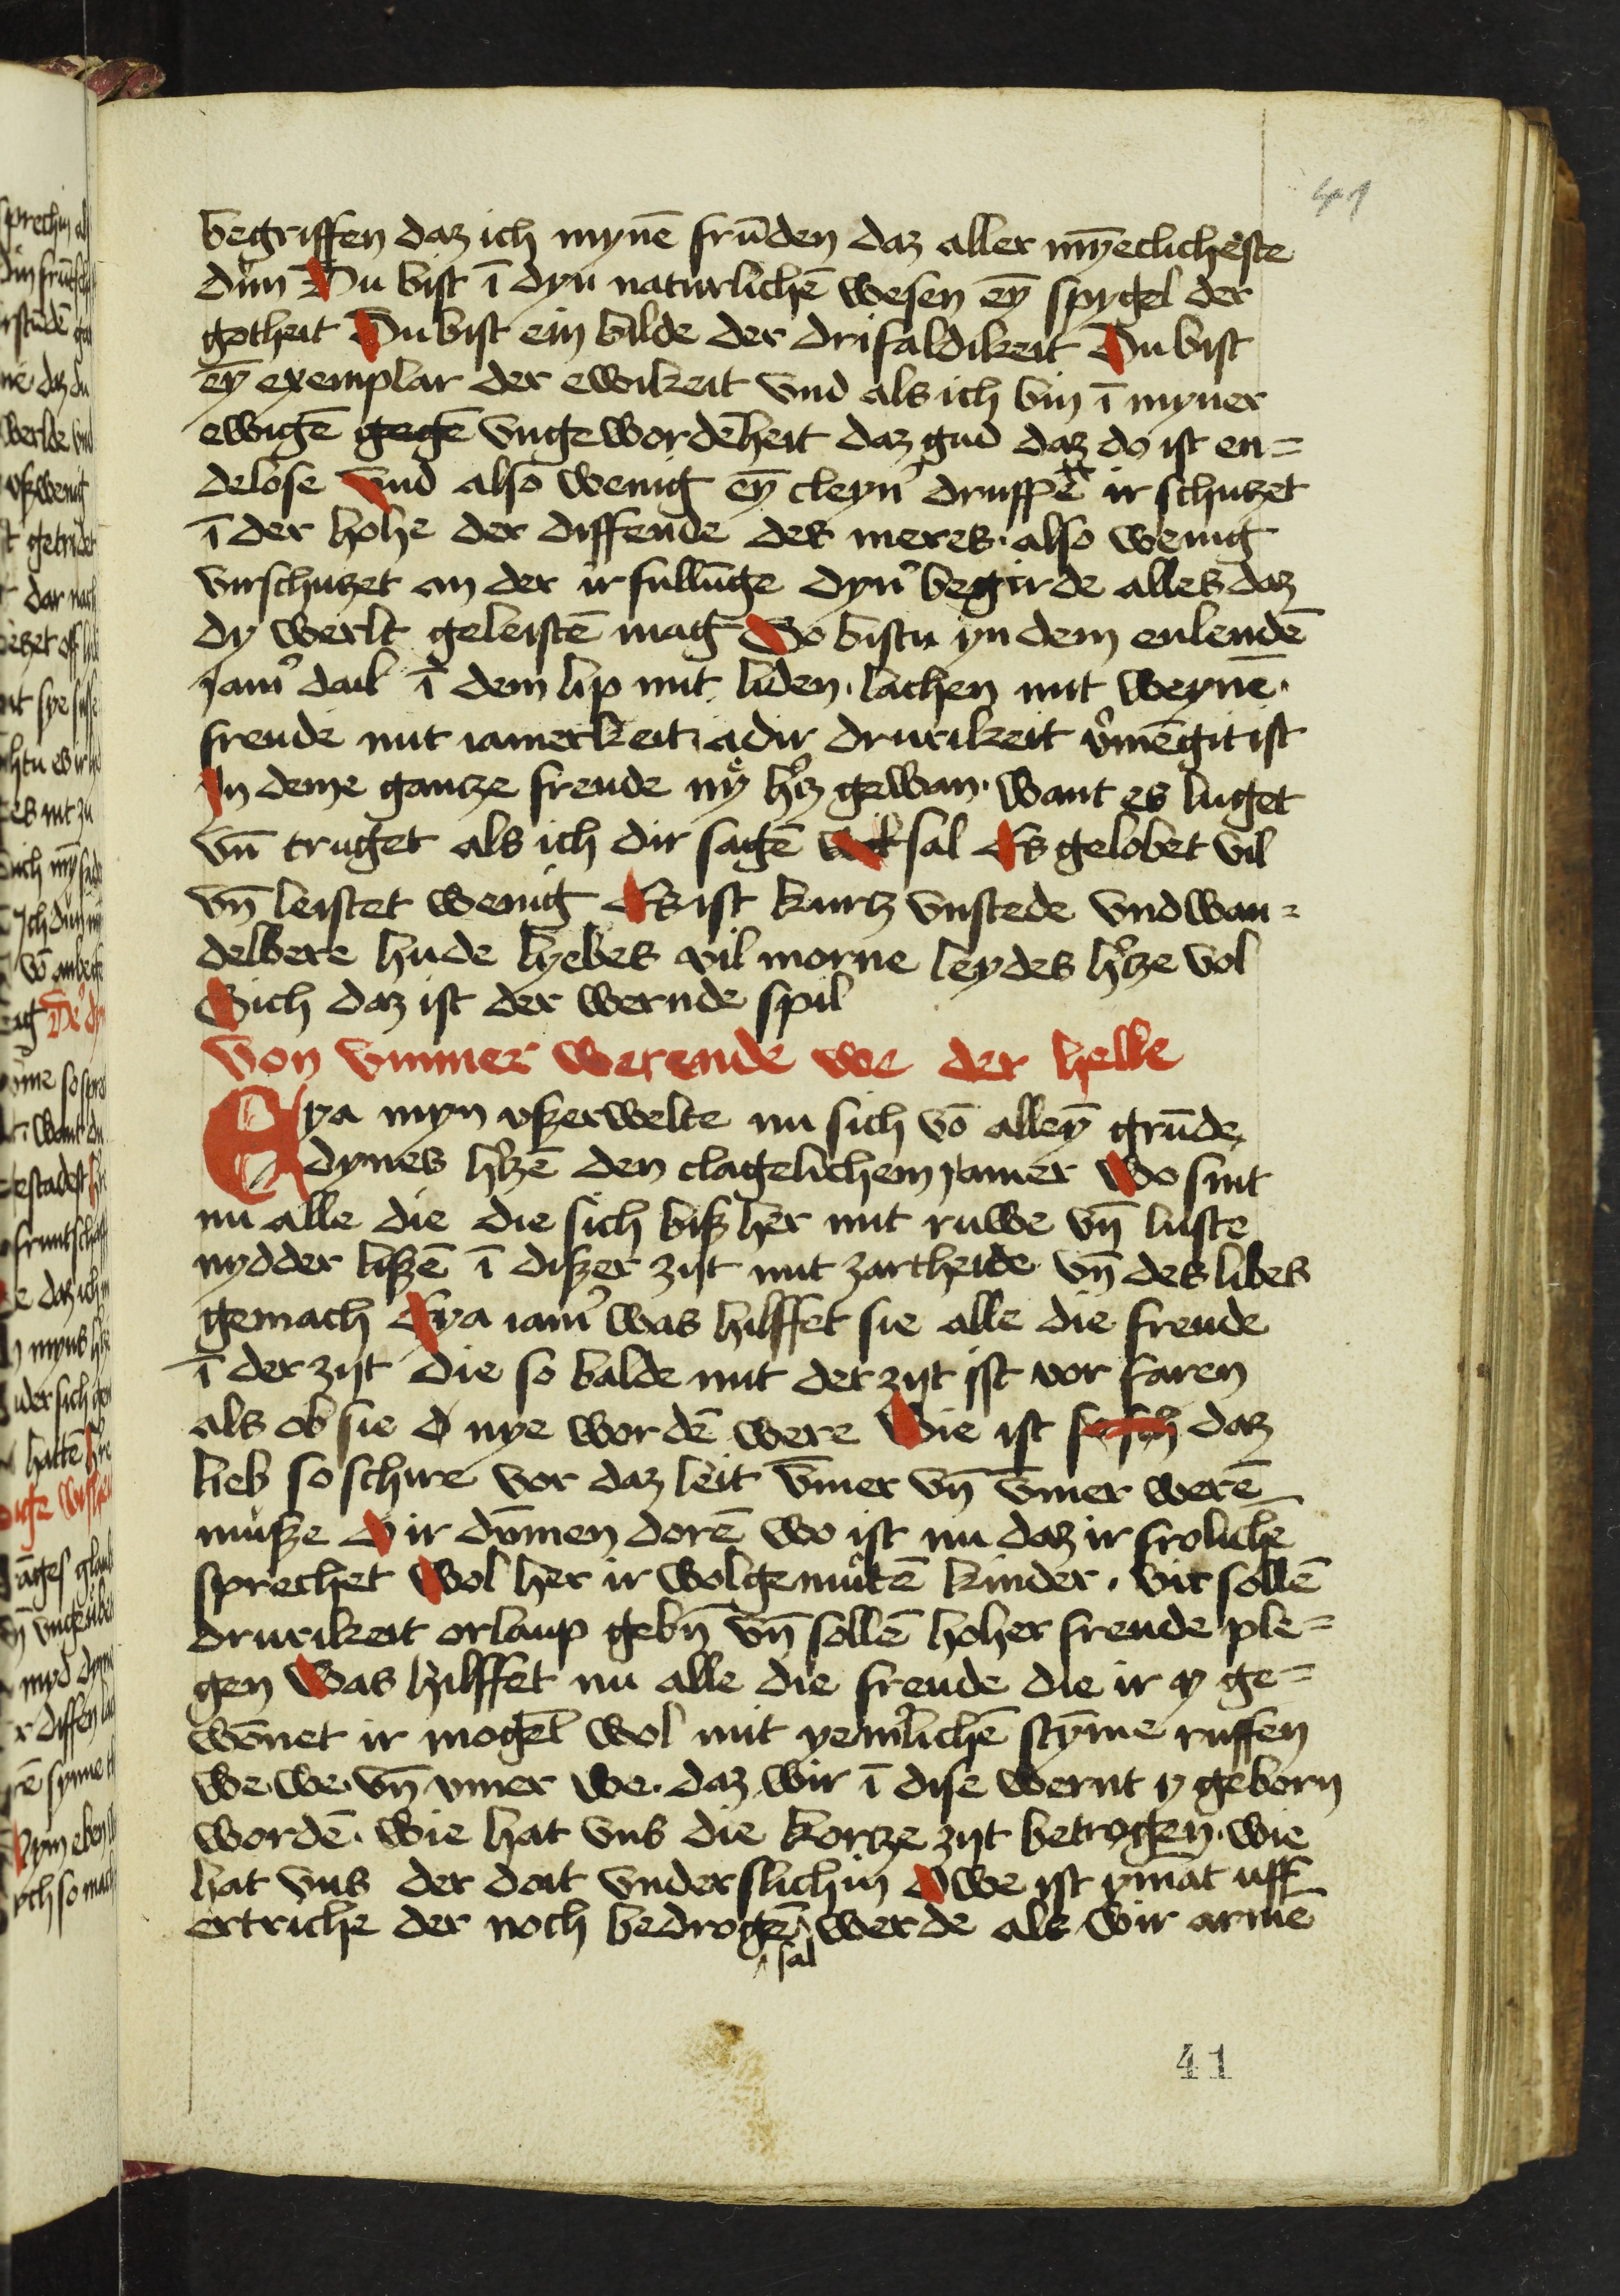 41
begriffen daz ich mynē frūden daz aller mȳeclicheste
dun Du bist ī dyn naturlichē wesen eȳ spygel der
gotheit Du bist ein bilde der drifaldikeit Du bist
eȳ exemplar der ewikeit vnd als ich bin ī myner
ewigē gegē vngewordēheit daz gud daz do ist en=
delose vnd also wenig eȳ cleynˀ druppē ir schutzet
ī der hohe der diffende des meres · also wenig
virschutzet an der irfullūge dynˀ begirde alles daz
dy werlt geleistē mag So bistu yn dem enlendē
Jamˀ dail ī dem lip mit liden · lachen mit weynē ·
freude mit iamerkeit · adir drurikeit vˀmēgit ist
In deme gantze freude ny hˀtz gewan · want es luget
vn̄ truget als ich dir sagē sal Es gelobet vil
vn̄ leistet wenig Es ist kurtz vnstede vnd wan=
delbere hude lyebes vil morne leydes hˀtze vol
Sich daz ist der wernde spil
Von vmmer werende we der helle
Eya myn vszerwelte nu sich vō alleȳ grūde
dynes hˀtzē den clagelichem Jamer Wo sint
nu alle die die sich bisz her mit ruwe vn̄ luste
nydder liszē ī diszer zijt mit zartheide vn̄ des libes
gemach Eya iamˀ was hilffet sie alle die freude
ī der zijt die so balde mit der zijt ist vor faren
als ob sie nye wordē were Wie ist daz
lieb so schire vor daz leit v̄mer vn̄ v̄mer werē
musze O ir dūmen dorē wo ist nu daz ir frolichē
sprechet Wol her ir wolgemutē kinder · wir sollē
drurikeit orlaup gebn̄ vn̄ sollē hoher freude ple=
gen Was hilffet nu alle die freude die ir y ge=
wōnet ir moget wol mit yemˀlichē stȳme ruffen
we · we · vn̄ vmer we · daz wir ī dise wernt y geborn
wordē · wie hat vns die kortze zijt betrogen · wie
hat vns der doit vnderslichin Owe ist ymāt uff
ertriche der noch bedrogē werde als wir armē
sal
41